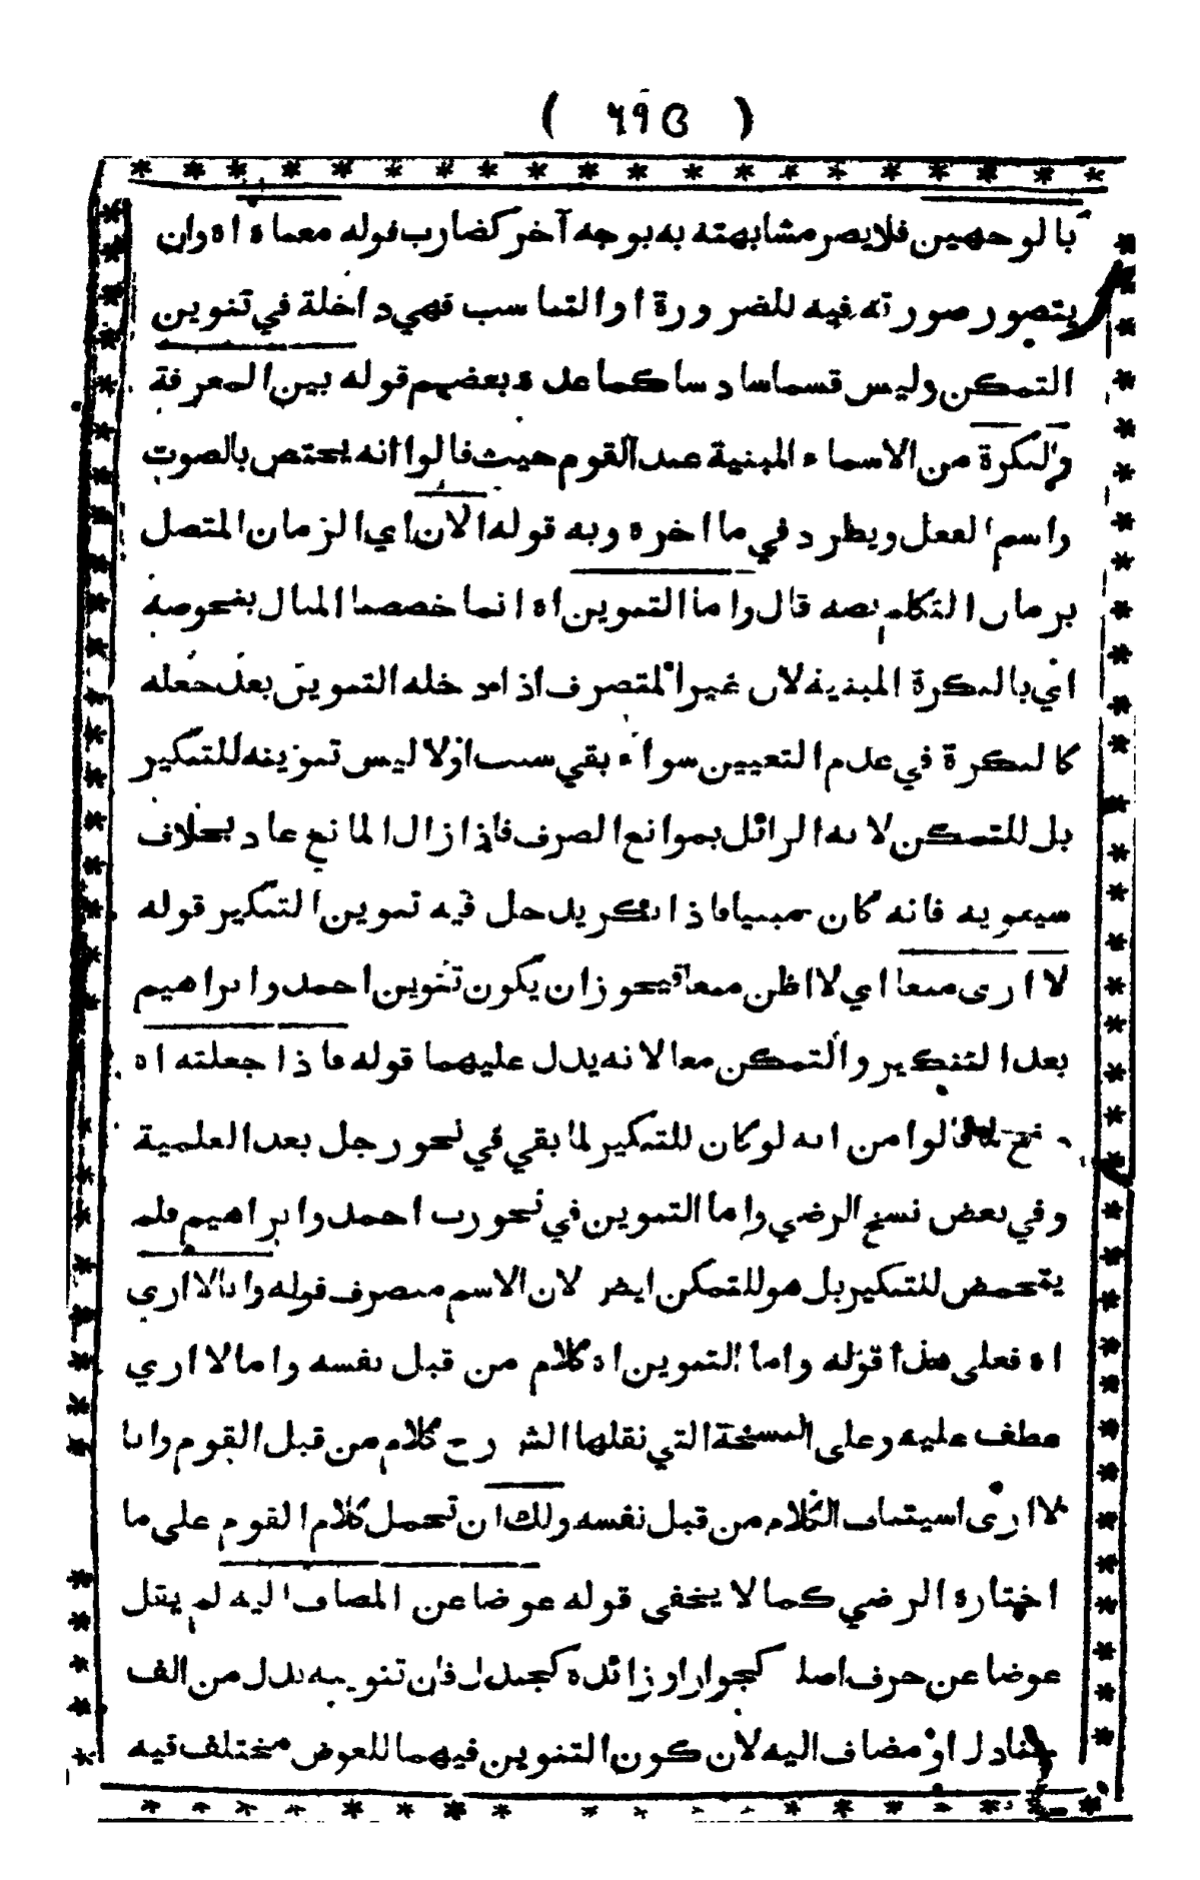 ( ٦٩٥ )
بالوجهين فلا يضر مشابهته به بوجه آخر كضارب قوله معناه اه وان
يتصور صورته فيه للضرورة او التناسب فهي داخلة في تنوين
التمكن وليس قسما سادسا كما عده بعضهم قوله بين المعرفة
والنكرة من الاسماء المبنية عند القوم حيث قالوا انه يختص بالصوت
واسم الفعل ويطرد في ما اخره ويه قوله الآن اي الزمان المتصل
بزمان التكلم بصه قال واما التنوين اه انما خصصنا المثال بنحوصه
اي بالنكرة المبنية لان غير المتصرف اذا دخله التنوين بعد جعله
كالنكرة في عدم التعيين سواء بقي سبب او لا ليس تنوينه للتنكير
بل للتمكن لانه الزائل بموانع الصرف فاذا زال المانع عاد بخلاف
سيبويه فانه كان مبنيا فاذا نكر يدخل فيه تنوين التنكير قوله
لا ارى منعا اي لا اظن منعا فيجوز ان يكون تنوين احمد وابراهيم
بعد التنكير والتمكن معا لانه يدل عليهما قوله فاذا جعلته اه
قالوا من انه لو كان للتنكير لما بقي في نحو رجل بعد العلمية
وفي بعض نسخ الرضي واما التنوين في نحو رب احمد وابراهيم فلم
يتمحض للتنكير بل هو للتمكن ايضا لان الاسم منصرف قوله وانا لا ارى
اه فعلى هذا قوله واما التنوين اه كلام من قبل نفسه واما لا اري
عطف عليه وعلى النسخة التي نقلها الشارح كلام من قبل القوم وانا
لا ارى استيناف الكلام من قبل نفسه ولك ان تحمل كلام القوم على ما
اختاره الرضي كما لا يخفى قوله عوضا عن المضاف اليه لم يقل
عوضا عن حرف اصلي كجوار او زائدة كجندل فان تنوينه بدل من الف
جنادل او مضاف اليه لان كون التنوين فيهما للعوض مختلف فيه